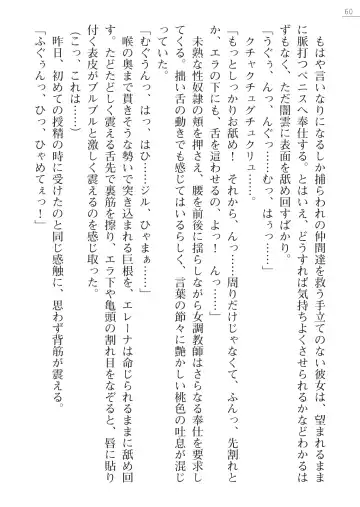 60
もはや言いなりになるしか捕らわれの仲間達を救う手立てのない彼女は、望まれるまま
に脈打つペニスへ奉仕する。とはいえ、どうすれば気持ちよくさせられるかなどわかるは
ずもなく、ただ闇雲に表面を舐め回すばかり。
「うぐぅ、んっ、んぐっ……むっ、はぅっ……」
クチャクチュグチュクリュ……。
「もっとしっかりお舐め！　それから、んっ……周りだけじゃなくて、ふんっ、先割れと
か、エラの下にも、舌を這わせるの、よっ！　んっ……」
未熟な性奴隷の頬を押さえ、腰を前後に揺らしながら女調教師はさらなる奉仕を要求し
てくる。拙い舌の動きでも感じてはいるらしく、言葉の節々に艶かしい桃色の吐息が混じ
っていた。
「むぐうん、はっ、はひ……ジル、ひゃまぁ……」
喉の奥まで貫きそうな勢いで突き込まれる巨根を、エレーナは命じられるままに舐め回
す。たどたどしく震える舌先で裏筋を擦り、エラ下や亀頭の割れ目をなぞると、唇に貼り
付く表皮がブルブルと激しく震えるのを感じ取った。
（こっ、これは……）
昨日、初めての授精の時に受けたのと同じ感触に、思わず背筋が震える。
「ふぐぅんっ、ひっ、ひゃめてぇっ！」